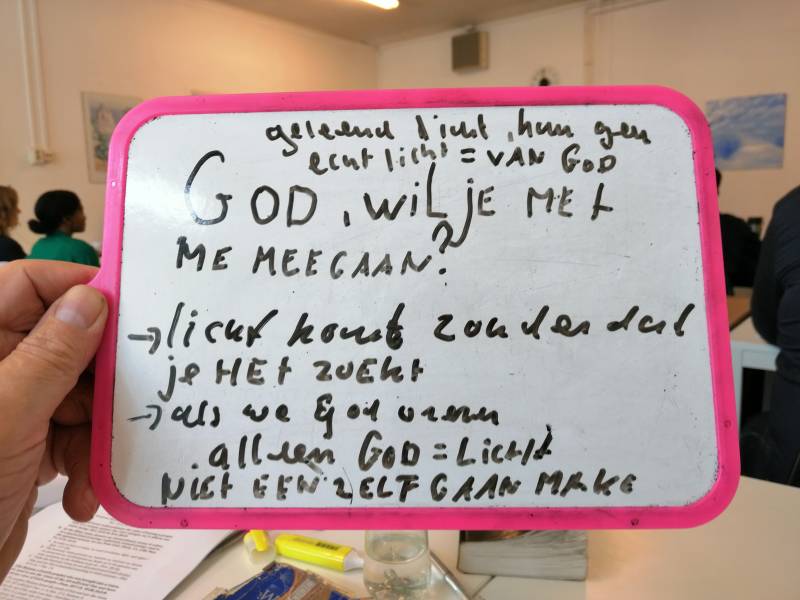 geleend licht, kan geen
echt licht = VAN GOD
GOD, WIL JE MET
ME MEEGAAN?
→ licht komt zonder dat
je HET ZOEKT
→ als we God
alleen GOD = LICHT
NIET EEN ZELF GAAN MAKE